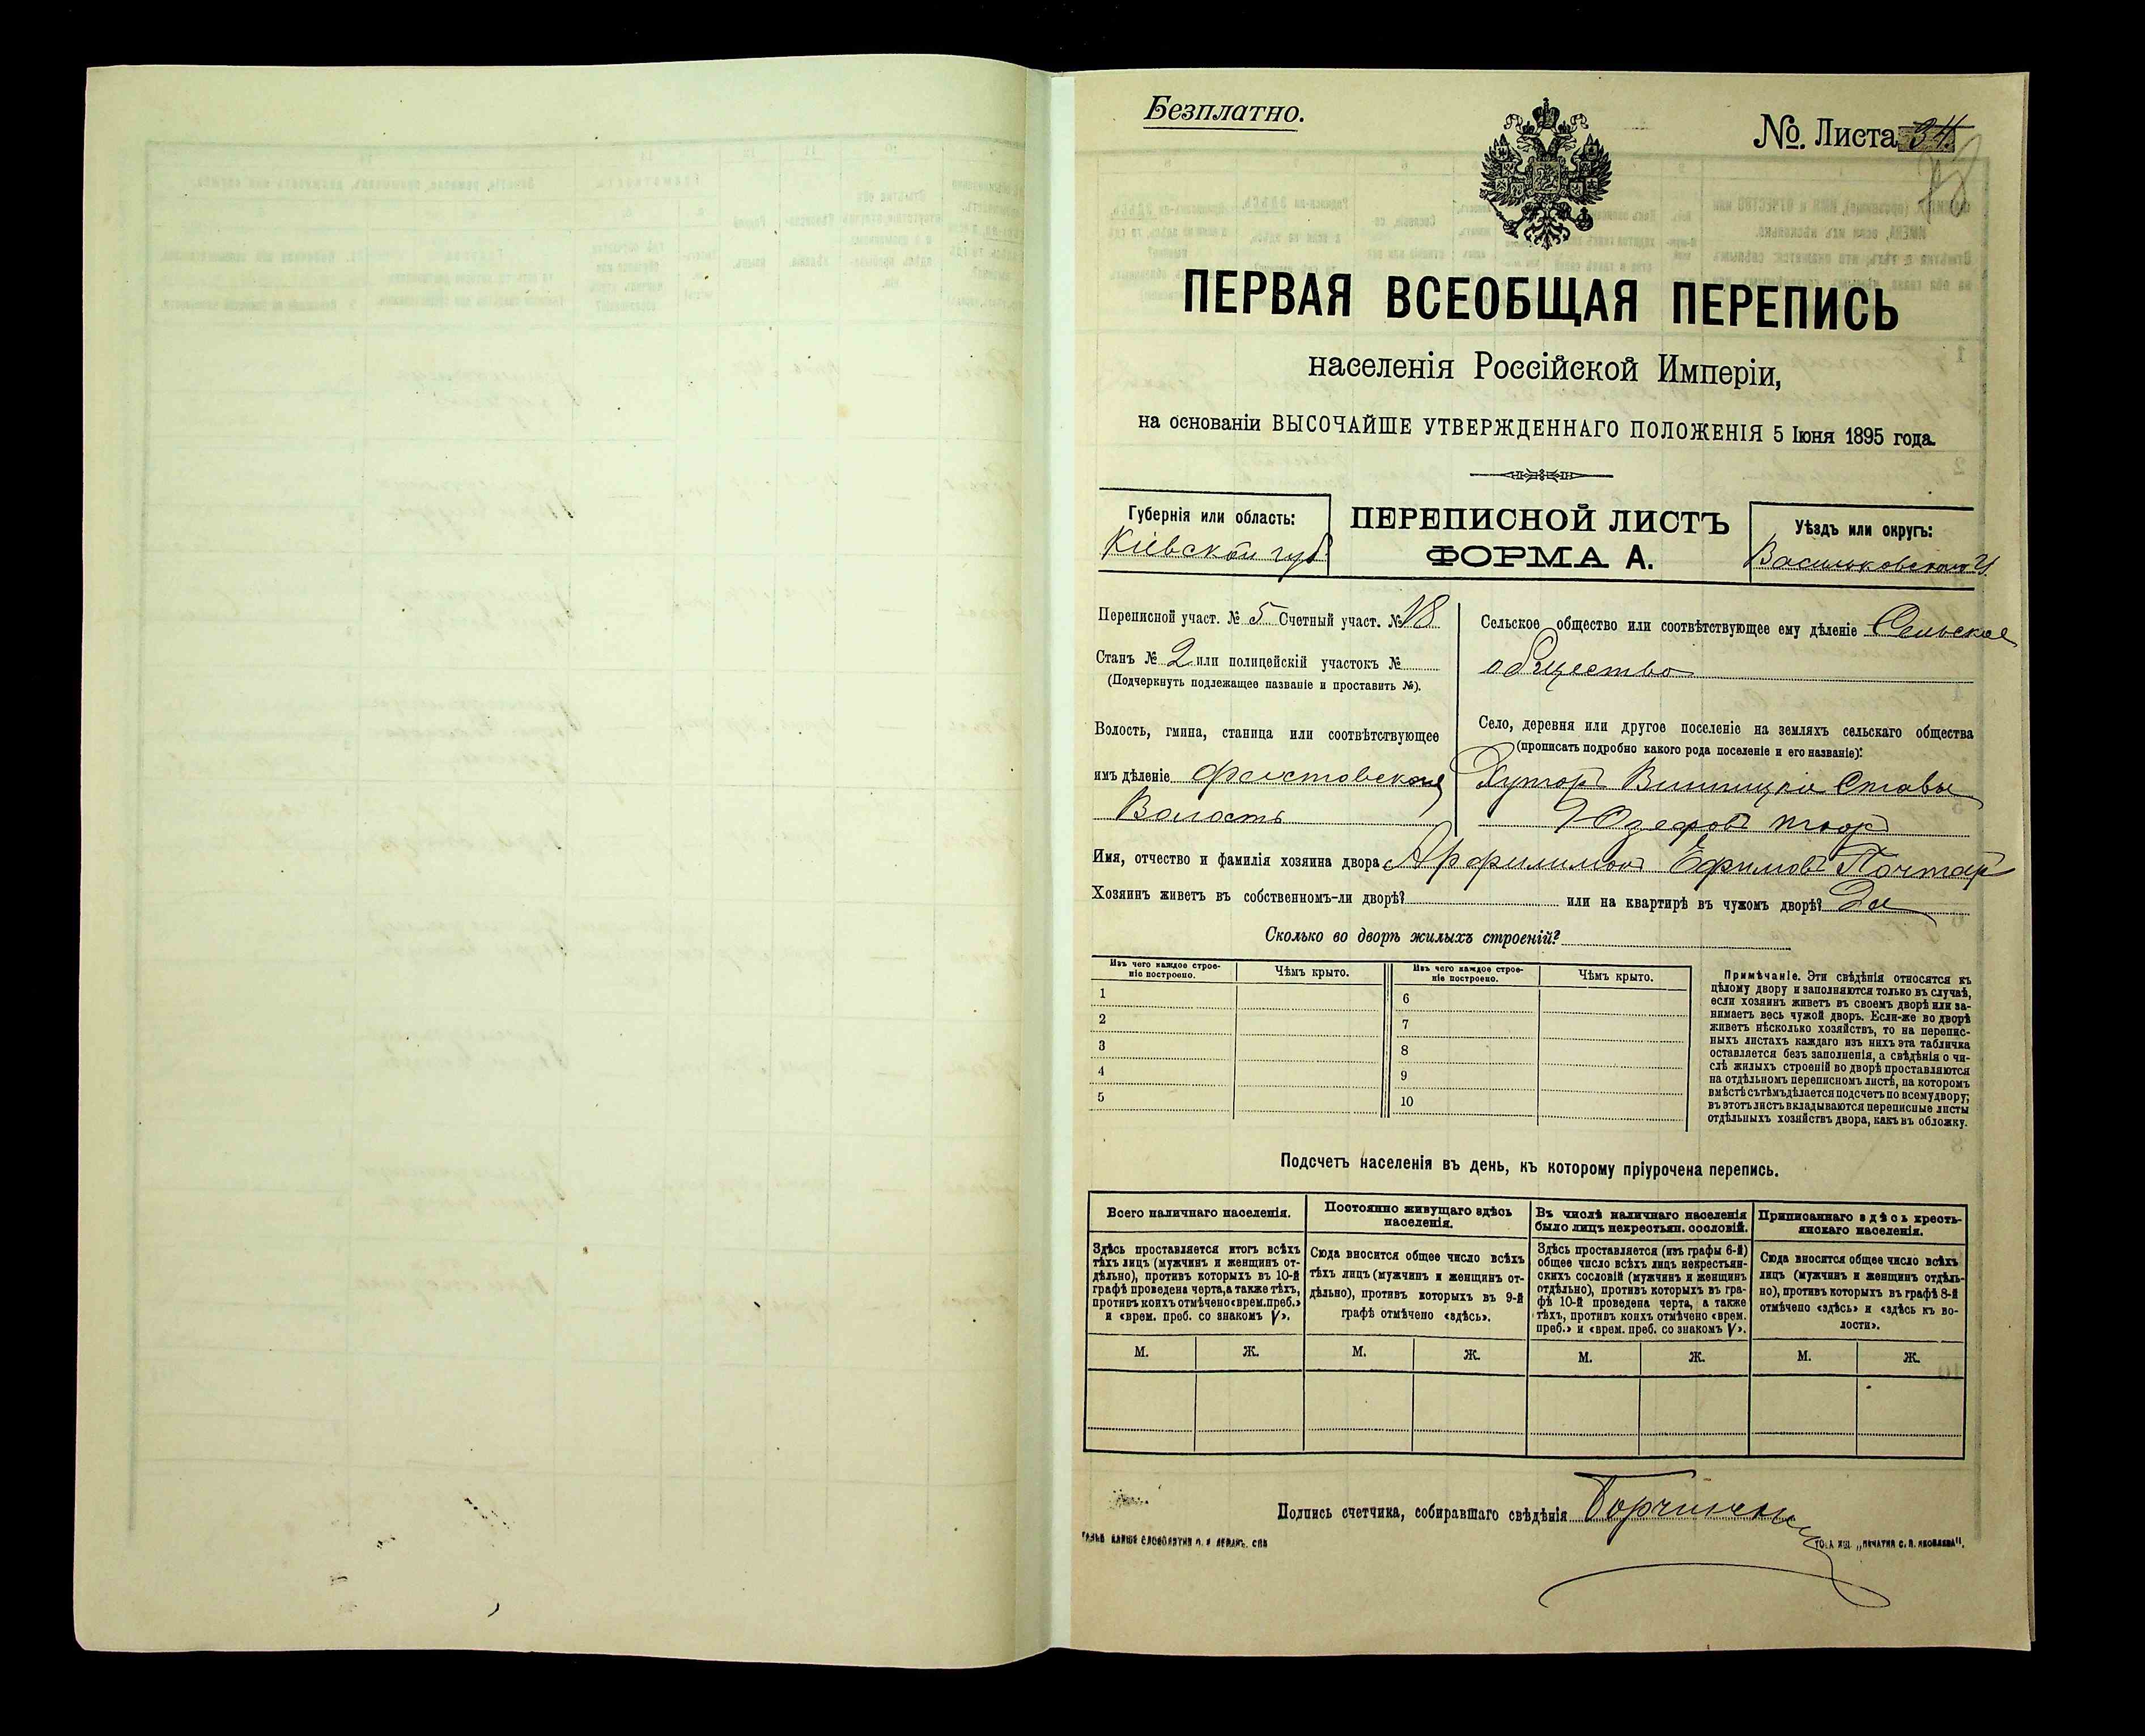 Безплатно.
№. Листа 34.
ПЕРВАЯ ВСЕОБЩАЯ ПЕРЕПИСЬ
населенія Россійской Имперіи,
на основаніи ВЫСОЧАЙШЕ УТВЕРЖДЕННАГО ПОЛОЖЕНІЯ 5 Іюня 1895 года.
Губернія или область:
Кіевской губ.
ПЕРЕПИСНОЙ ЛИСТЪ
ФОРМА А.
Уѣздъ или округъ:
Васильковскаго У.
Переписной участ. № 5 Счетный участ. № 18
Станъ № 2 или полицейскій участокъ №
(Подчеркнуть подлежащее названіе и проставить №).
Волость, гмина, станица или соотвѣтствующее
имъ дѣленіе Фастовская
Волость
Сельское общество или соотвѣтствующее ему дѣленіе Сельское
общество
Село, деревня или другое поселеніе на земляхъ сельскаго общества
(прописать подробно какого рода поселеніе и его названіе):
Хуторъ Винницкіе Ставы
Имя, отчество и фамилія хозяина двора Ефимовъ Почтарь
Хозяинъ живетъ въ собственномъ-ли дворѣ? или на квартирѣ въ чужомъ дворѣ? Да
Сколько во дворѣ жилыхъ строеній?
Изъ чего каждое строе-
ніе построено.
Чѣмъ крыто.
Изъ чего каждое строе-
ніе построено.
Чѣмъ крыто.
1
2
3
4
5
6
7
8
9
10
Примѣчаніе. Эти свѣдѣнія относятся къ
цѣлому двору и заполняются только въ случаѣ,
если хозяинъ живетъ въ своемъ дворѣ или за-
нимаетъ весь чужой дворъ. Если-же во дворѣ
живетъ нѣсколько хозяйствъ, то на перепис-
ныхъ листахъ каждаго изъ нихъ эта табличка
оставляется безъ заполненія, а свѣдѣнія о чи-
слѣ жилыхъ строеній во дворѣ проставляются
на отдѣльномъ переписномъ листѣ, на которомъ
вмѣстѣ съ тѣмъ дѣлается подсчетъ по всему двору;
въ этотъ листъ вкладываются переписные листы
отдѣльныхъ хозяйствъ двора, какъ въ обложку.
Подсчетъ населенія въ день, къ которому пріурочена перепись.
Всего наличнаго населенія.
Здѣсь проставляется итогъ всѣхъ
тѣхъ лицъ (мужчинъ и женщинъ от-
дѣльно), противъ которыхъ въ 10-й
графѣ проведена черта, а также тѣхъ,
противъ коихъ отмѣчено «врем. преб.»
и «врем. преб. со знакомъ V».
Постоянно живущаго здѣсь
населенія.
Сюда вносится общее число всѣхъ
тѣхъ лицъ (мужчинъ и женщинъ от-
дѣльно), противъ которыхъ въ 9-й
графѣ отмѣчено «здѣсь».
Въ числѣ наличнаго населенія
было лицъ некрестьян. сословій.
Здѣсь проставляется (изъ графы 6-й)
общее число всѣхъ лицъ некрестьян-
скихъ сословій (мужчинъ и женщинъ
отдѣльно), противъ которыхъ въ гра-
фѣ 10-й проведена черта, а также
тѣхъ, противъ коихъ отмѣчено «врем.
преб.» и «врем. преб. со знакомъ V».
Приписаннаго здѣсь кресть-
янскаго населенія.
Сюда вносится общее число всѣхъ
лицъ (мужчинъ и женщинъ отдѣль-
но), противъ которыхъ въ графѣ 8-й
отмѣчено «здѣсь» и «здѣсь къ во-
лости».
М. Ж. М. Ж. М. Ж. М. Ж.
Подпись счетчика, собиравшаго свѣдѣнія